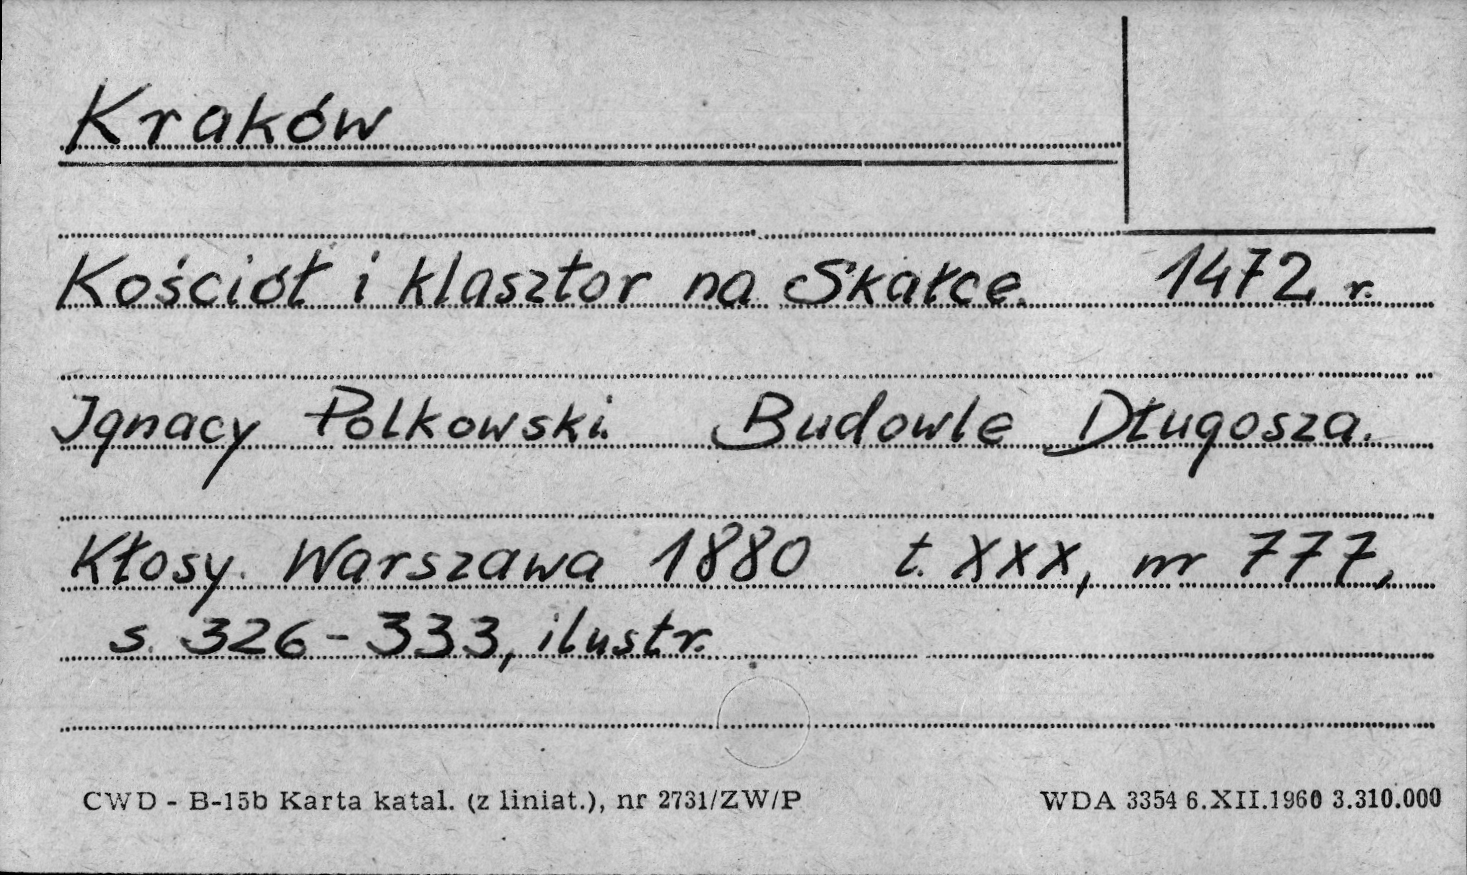 Kraków
Kościół i klasztor na Skałce. 1472 r.
Ignacy Polkowski. Budowle Długosza.
Kłosy. Warszawa 1880 t. XXX, nr 777,
s. 326-333, ilustr.
CWD - B-15b Karta katal. (z liniat.), nr 2731/ZW/P WDA 3354 6.XII.1960 3.310.000